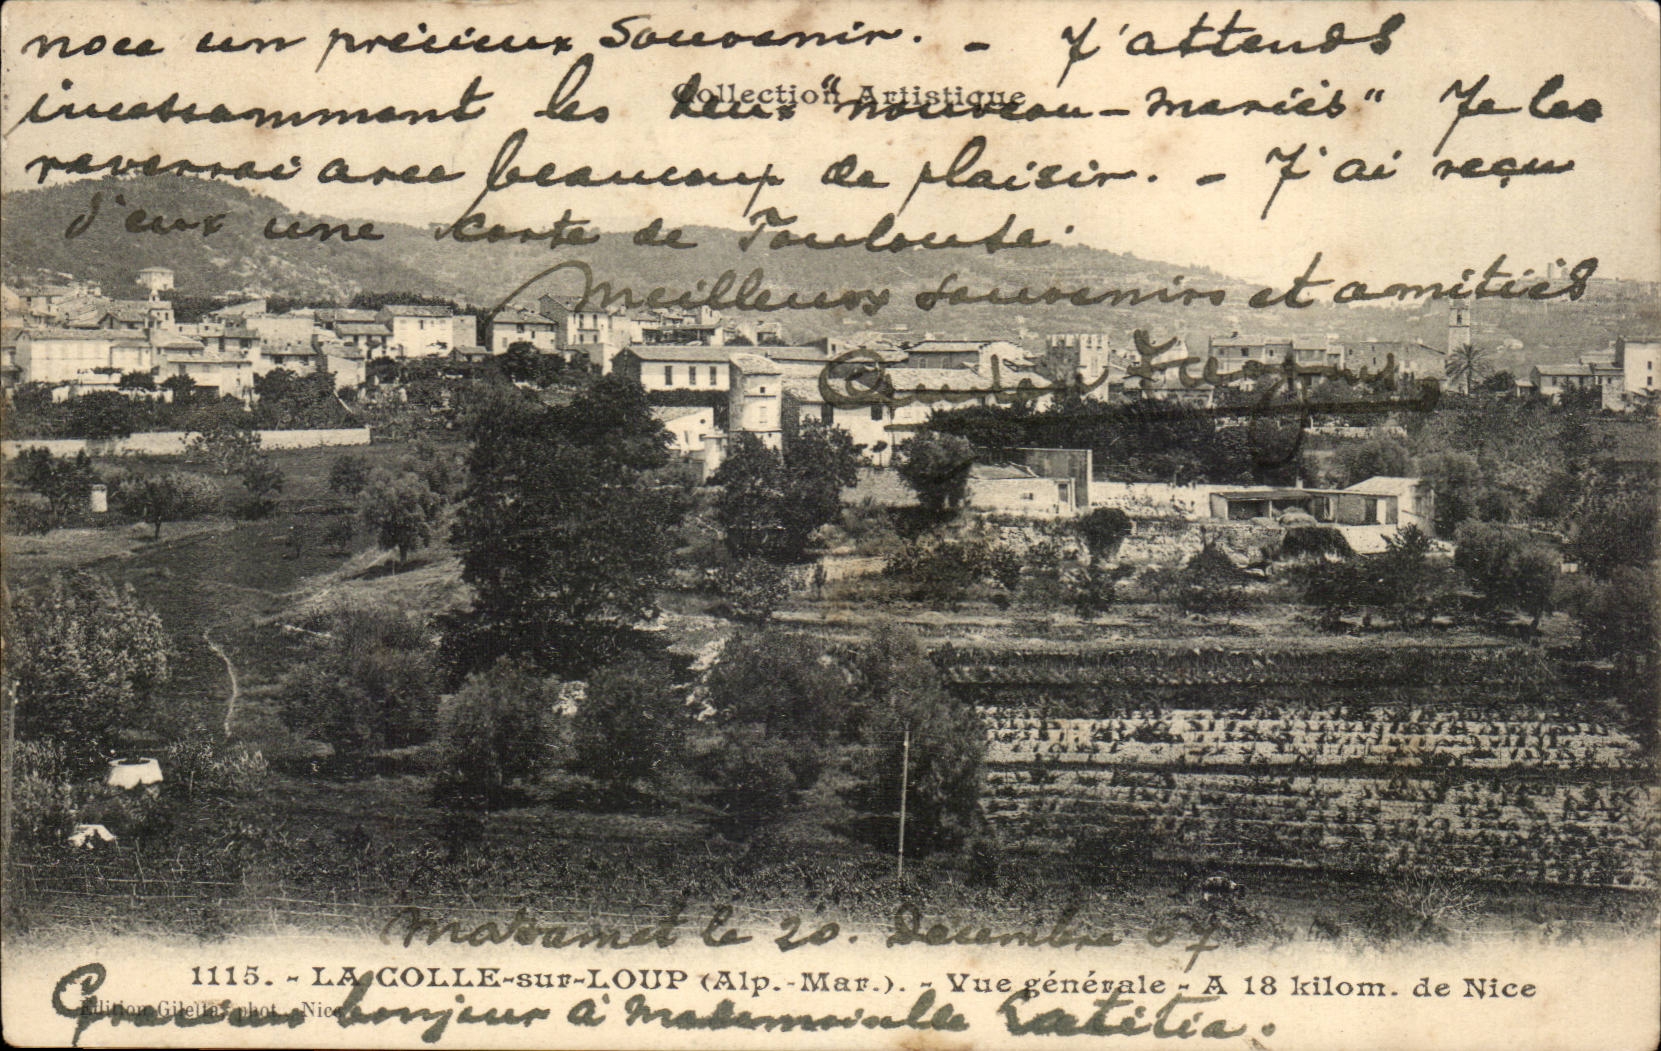 noce un précieux Souvenir. - J'attends
Collection Artistique
incessamment les deux "nouveau-mariés" Je les
reverrai avec beaucoup de plaisir. - J'ai reçu
d'eux une carte de Toulouse.
Meilleurs souvenirs et amitiés
le 20. Decembre 07
1115. - LA COLLE-sur-LOUP (Alp.-Mar.). - Vue générale - A 18 kilom. de Nice
Edition Giletta, phot., Nice
Gracieux bonjour à Mademoiselle Laetitia.